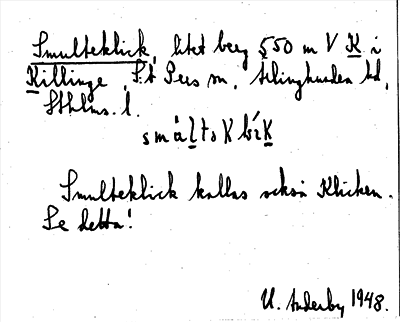 Smulteklick, litet berg 550 m V K i
Killinge, S:t Pers sn, Ærlinghundra hd,
Sthlms. l.
smálteklik
Smulteklick kallas också Klicken.
Se detta!
U. Anderby 1948.